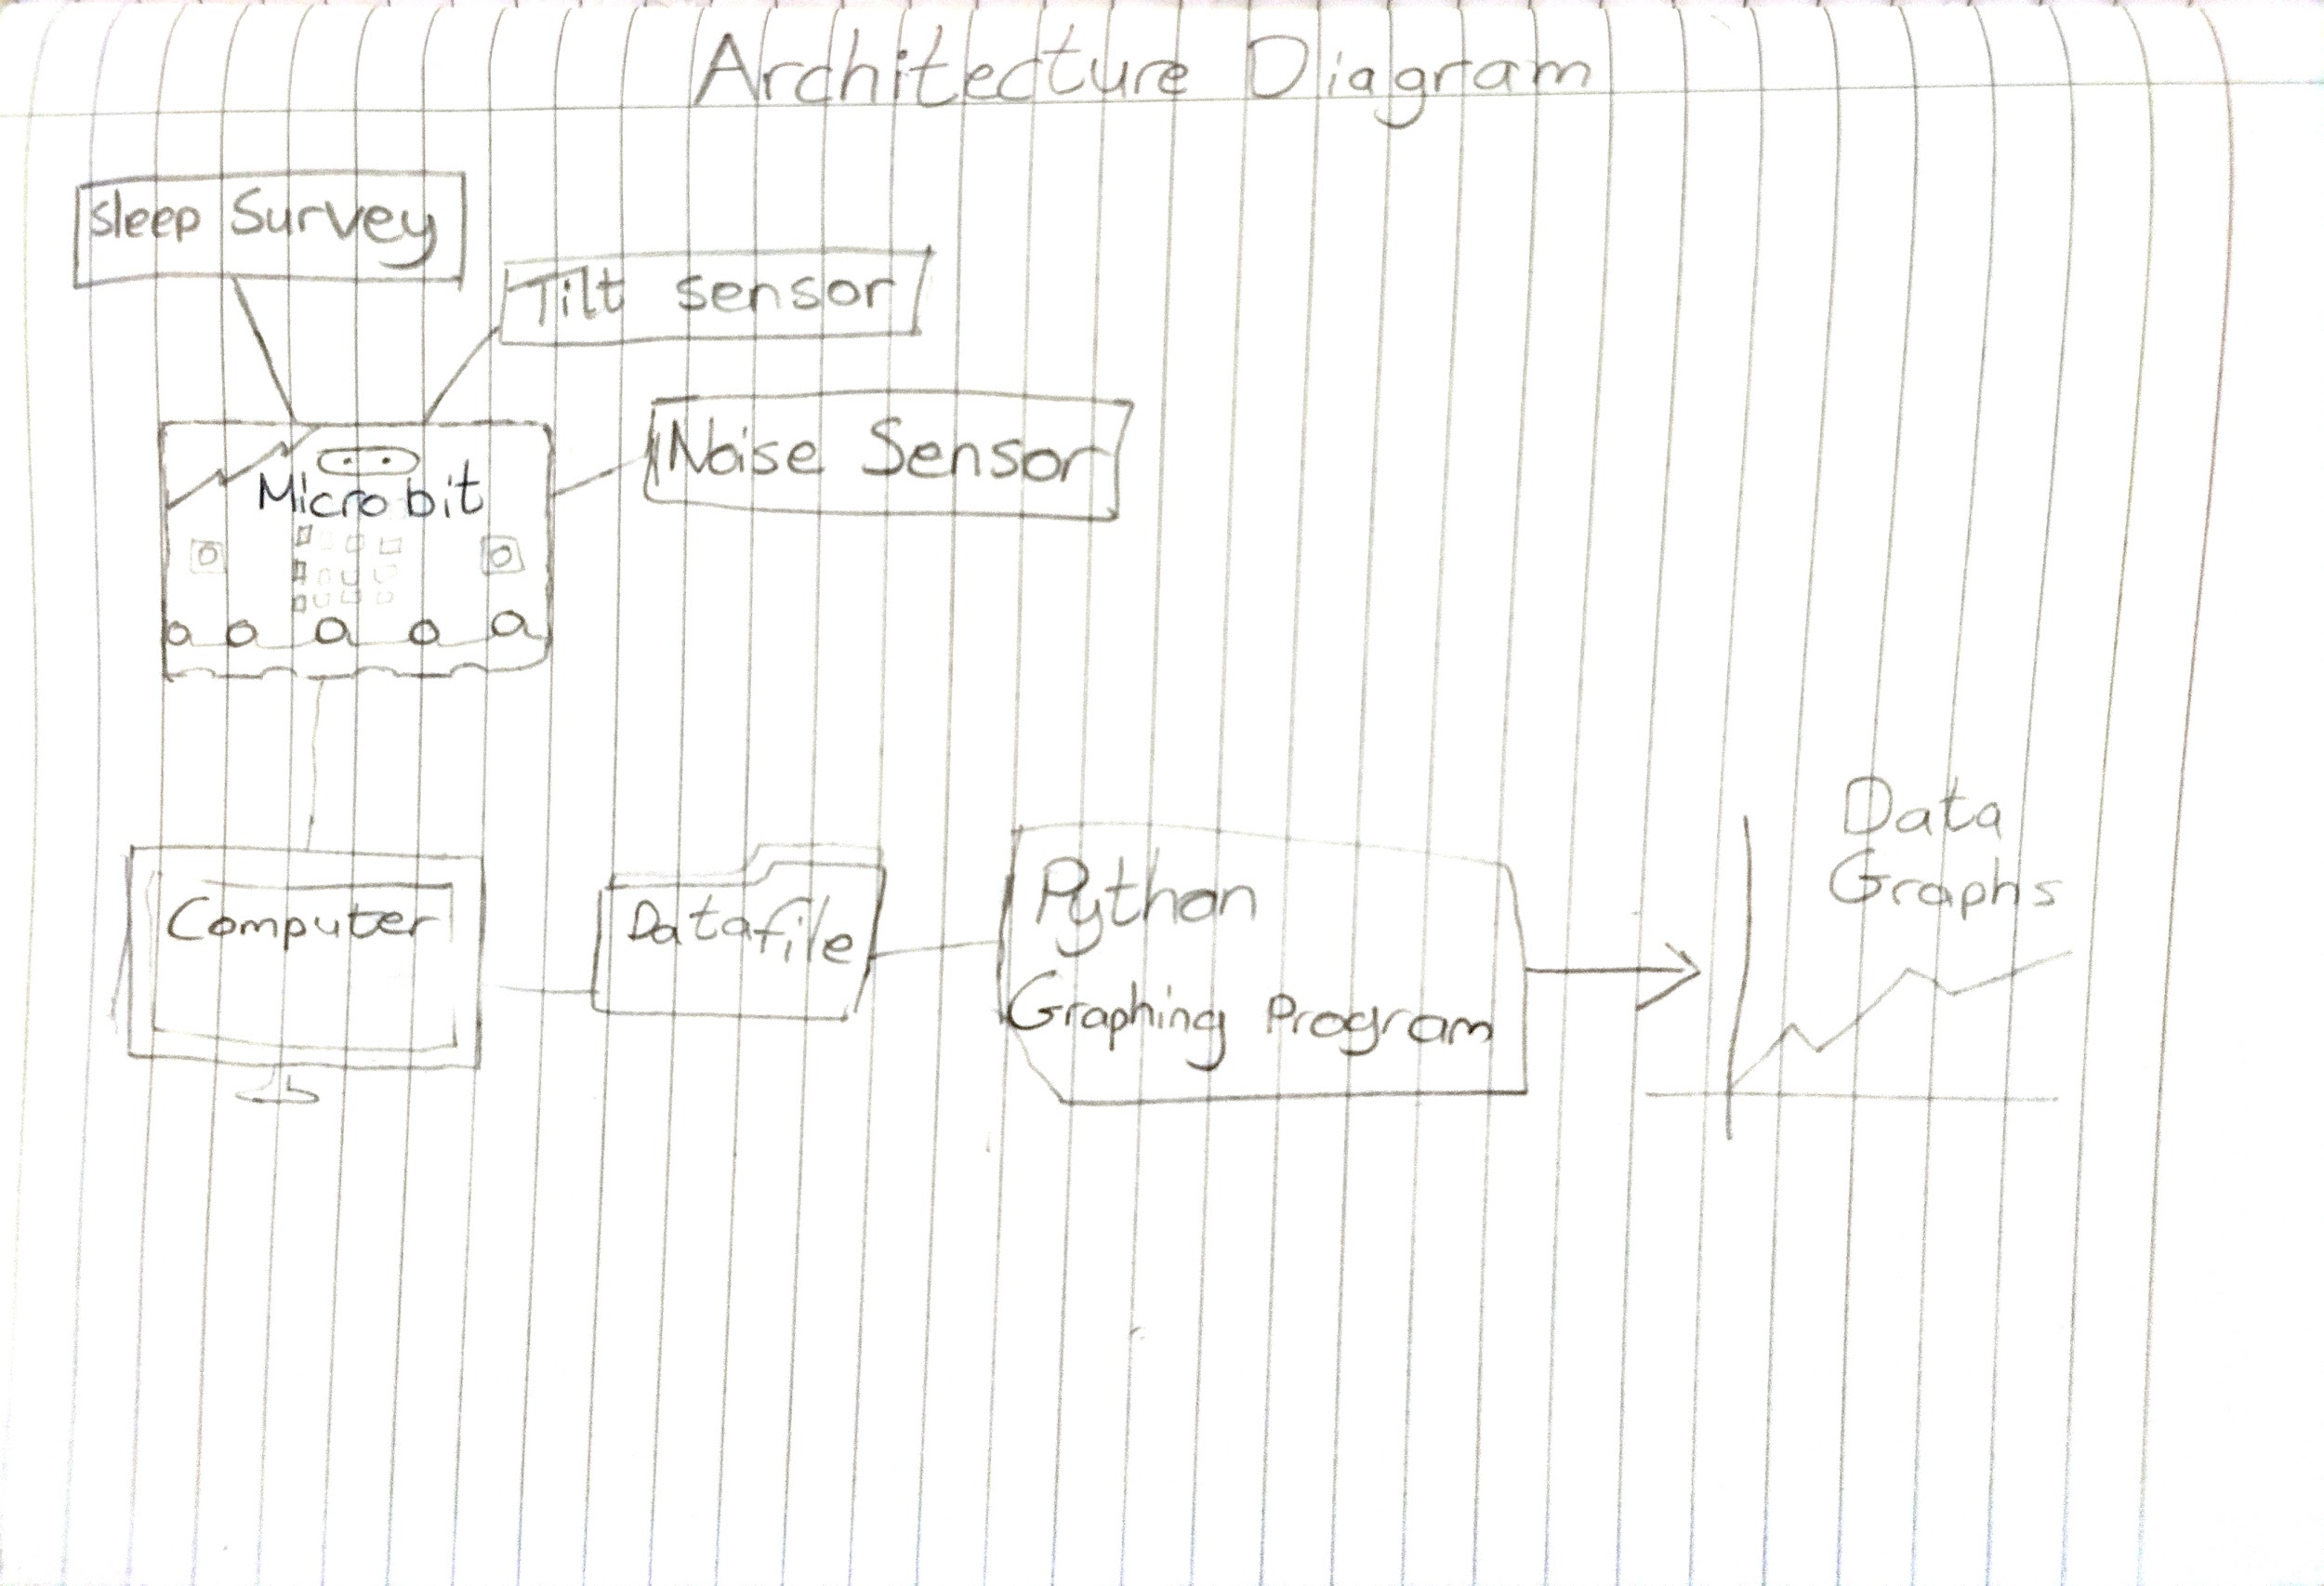 Architecture Diagram
Sleep Survey
Tilt sensor
Noise Sensor
Microbit
Computer
Datafile
Python
Graphing Program
Data
Graphs